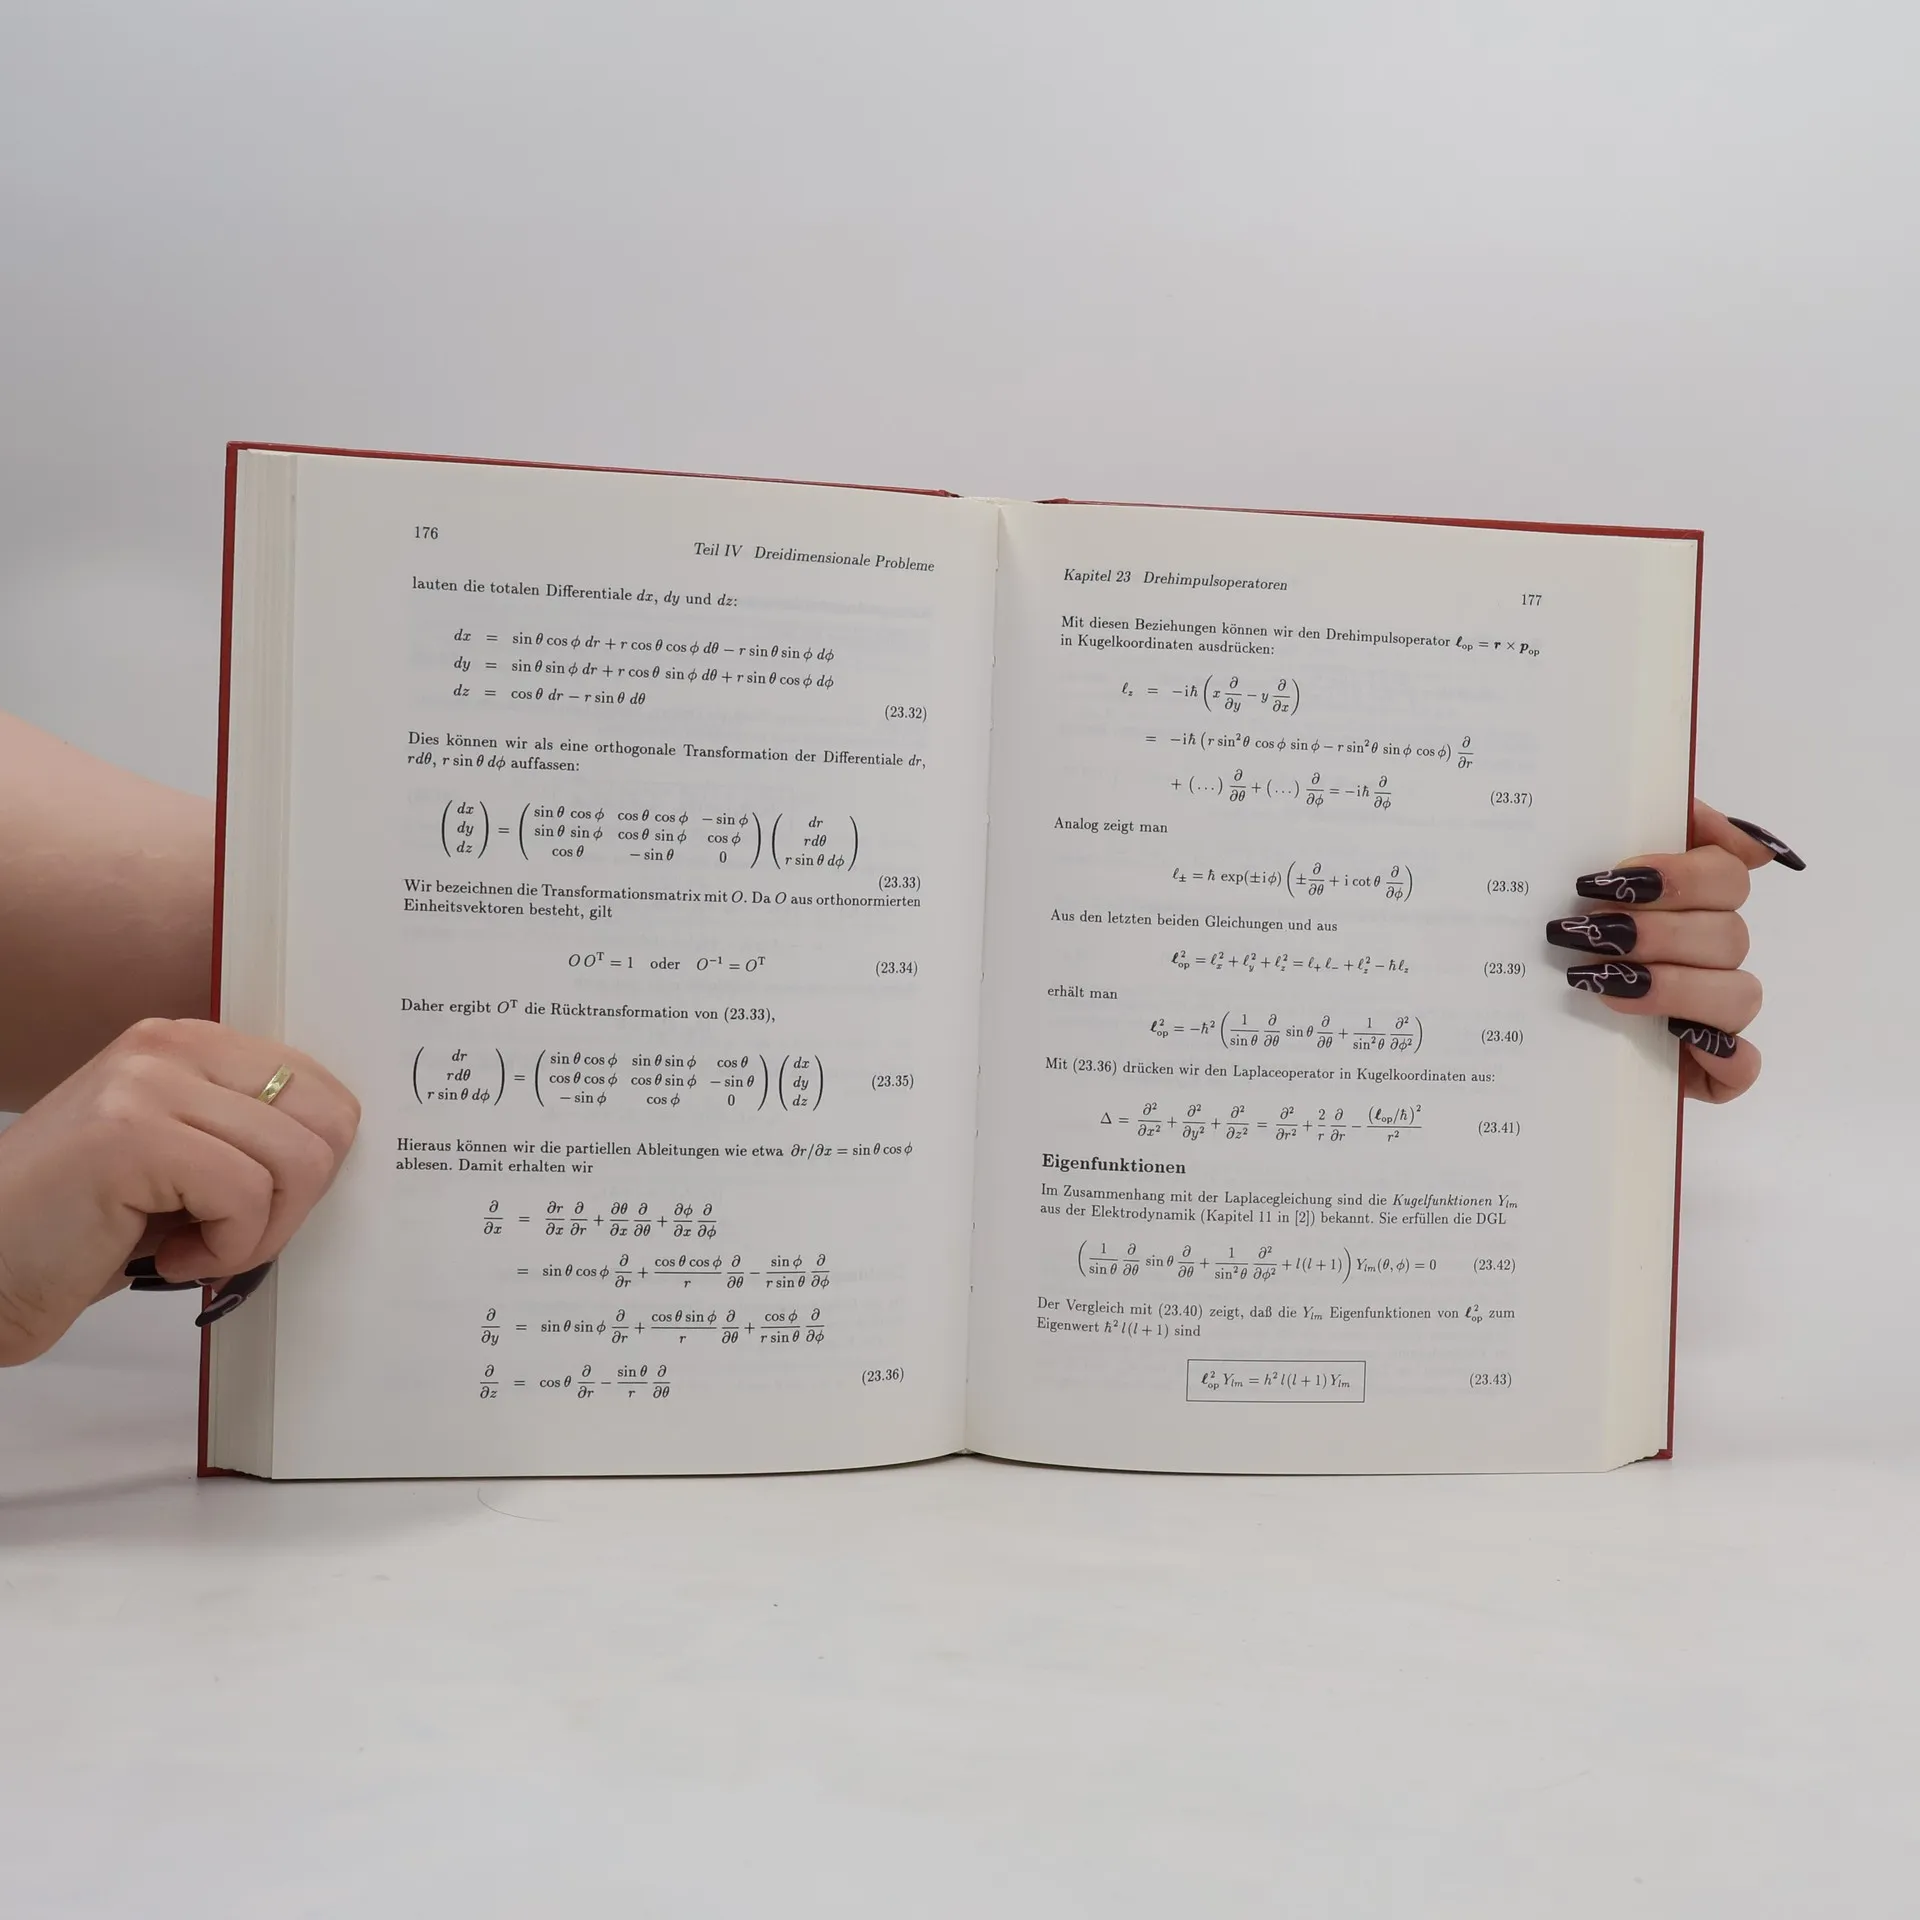 176
Teil IV Dreidimensionale Probleme
lauten die totalen Differentiale dx, dy und dz:
dx = sin θ cos ϕ dr + r cos θ cos ϕ dθ − r sin θ sin ϕ dϕ
dy = sin θ sin ϕ dr + r cos θ sin ϕ dθ + r sin θ cos ϕ dϕ
dz = cos θ dr − r sin θ dθ
(23.32)
Dies können wir als eine orthogonale Transformation der Differentiale dr,
rdθ, r sin θ dϕ auffassen:
( dx ) = ( sin θ cos ϕ cos θ cos ϕ − sin ϕ ) ( dr )
( dy ) ( sin θ sin ϕ cos θ sin ϕ cos ϕ ) ( rdθ )
( dz ) ( cos θ − sin θ 0 ) ( r sin θ dϕ )
(23.33)
Wir bezeichnen die Transformationsmatrix mit O. Da O aus orthonormierten
Einheitsvektoren besteht, gilt
O Oᵀ = 1 oder O⁻¹ = Oᵀ (23.34)
Daher ergibt Oᵀ die Rücktransformation von (23.33),
( dr ) = ( sin θ cos ϕ sin θ sin ϕ cos θ ) ( dx )
( rdθ ) ( cos θ cos ϕ cos θ sin ϕ − sin θ ) ( dy ) (23.35)
( r sin θ dϕ ) ( − sin ϕ cos ϕ 0 ) ( dz )
Hieraus können wir die partiellen Ableitungen wie etwa ∂r/∂x = sin θ cos ϕ
ablesen. Damit erhalten wir
∂/∂x = ∂r/∂x ∂/∂r + ∂θ/∂x ∂/∂θ + ∂ϕ/∂x ∂/∂ϕ
= sin θ cos ϕ ∂/∂r + cos θ cos ϕ/r ∂/∂θ − sin ϕ/r sin θ ∂/∂ϕ
∂/∂y = sin θ sin ϕ ∂/∂r + cos θ sin ϕ/r ∂/∂θ + cos ϕ/r sin θ ∂/∂ϕ
∂/∂z = cos θ ∂/∂r − sin θ/r ∂/∂θ (23.36)
Kapitel 23 Drehimpulsoperatoren
177
Mit diesen Beziehungen können wir den Drehimpulsoperator ℓ_op = r × p_op
in Kugelkoordinaten ausdrücken:
ℓ_z = −iħ (x ∂/∂y − y ∂/∂x)
= −iħ (r sin²θ cos ϕ sin ϕ − r sin²θ sin ϕ cos ϕ) ∂/∂r
+ (...) ∂/∂θ + (...) ∂/∂ϕ = −iħ ∂/∂ϕ (23.37)
Analog zeigt man
ℓ± = ħ exp(±iϕ) (± ∂/∂θ + i cot θ ∂/∂ϕ) (23.38)
Aus den letzten beiden Gleichungen und aus
ℓ²_op = ℓ²_x + ℓ²_y + ℓ²_z = ℓ₊ ℓ₋ + ℓ²_z − ħℓ_z (23.39)
erhält man
ℓ²_op = −ħ² (1/sin θ ∂/∂θ sin θ ∂/∂θ + 1/sin²θ ∂²/∂ϕ²) (23.40)
Mit (23.36) drücken wir den Laplaceoperator in Kugelkoordinaten aus:
Δ = ∂²/∂x² + ∂²/∂y² + ∂²/∂z² = ∂²/∂r² + 2/r ∂/∂r − (ℓ_op/ħ)²/r² (23.41)
Eigenfunktionen
Im Zusammenhang mit der Laplacegleichung sind die Kugelfunktionen Y_lm
aus der Elektrodynamik (Kapitel 11 in [2]) bekannt. Sie erfüllen die DGL
(1/sin θ ∂/∂θ sin θ ∂/∂θ + 1/sin²θ ∂²/∂ϕ² + l(l + 1)) Y_lm(θ, ϕ) = 0 (23.42)
Der Vergleich mit (23.40) zeigt, daß die Y_lm Eigenfunktionen von ℓ²_op zum
Eigenwert ħ² l(l + 1) sind
ℓ²_op Y_lm = ħ² l(l + 1) Y_lm (23.43)